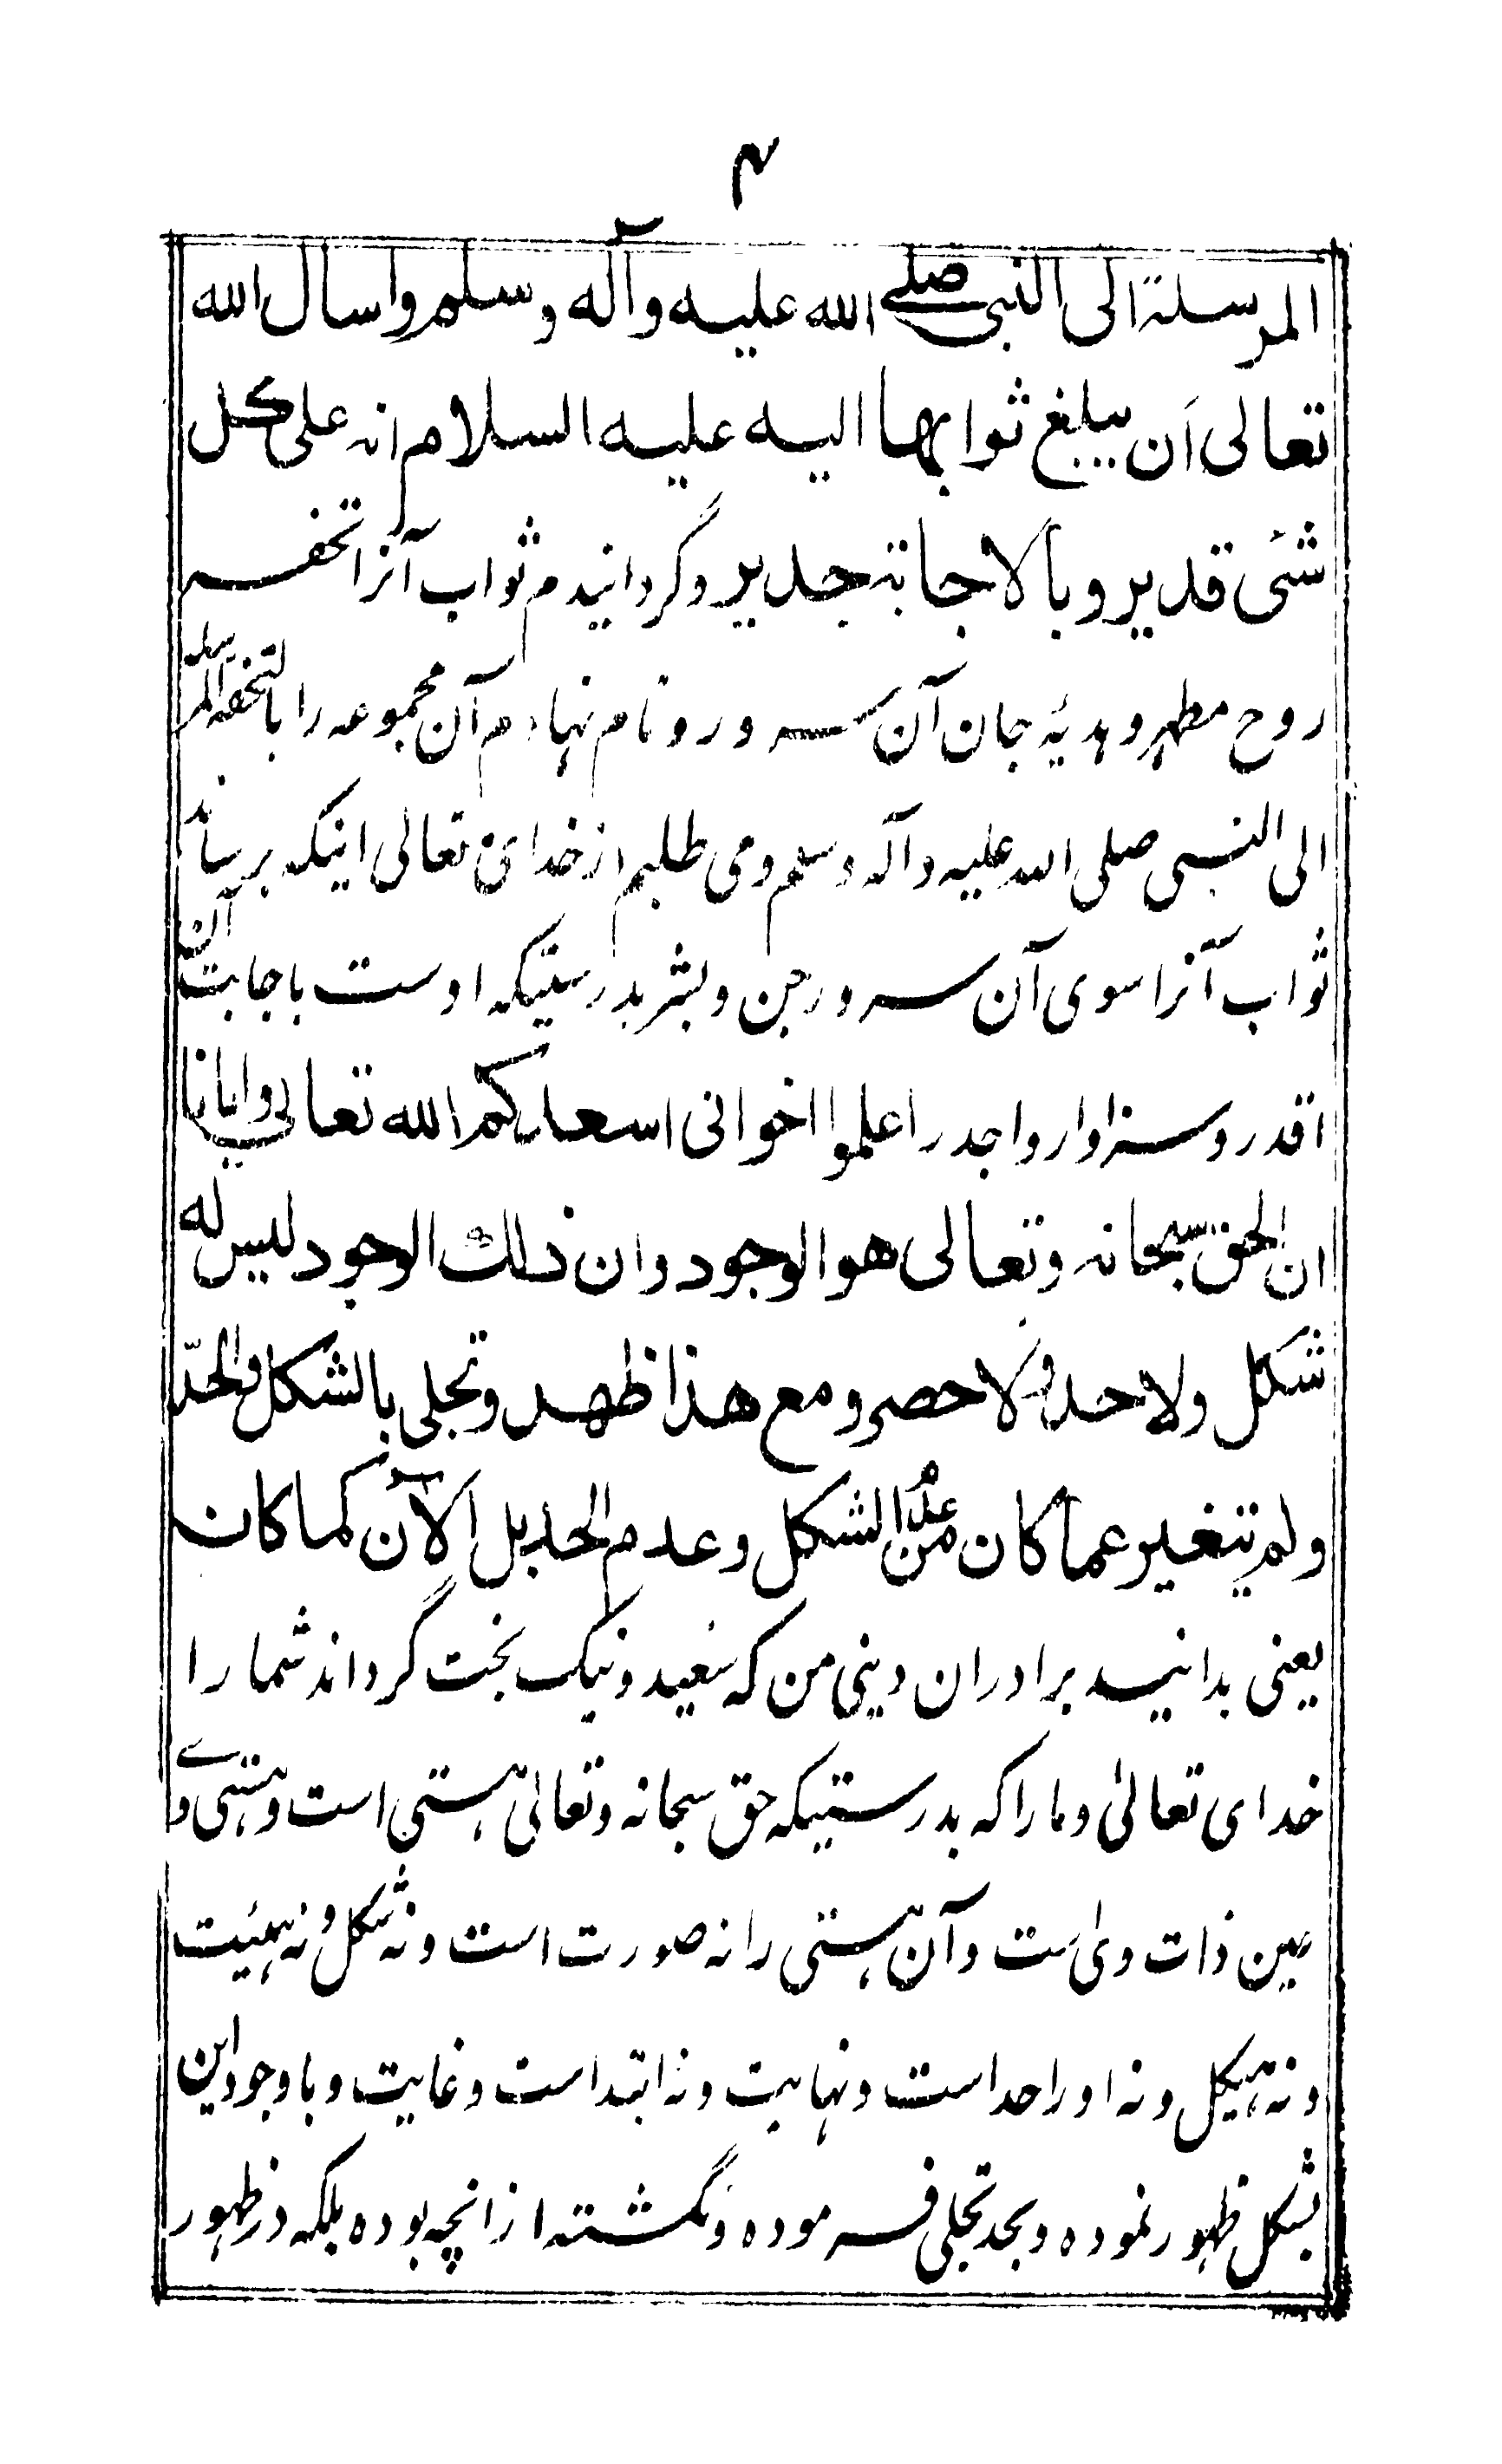 ۴
المرسلة الی النبی صلے الله علیه وآله وسلم واسال الله
تعالی ان یبلغ ثوابها الیه علیه السلام انه علی کل
شئ قدیر وبالاجابة جدیر وگردانیدم ثواب آنرا تحفه
روح مطهر وهدیۂ جان آن سرور ونام نهادم آن مجموعه را بالتحفة المرسلة
الی النبی صلی الله علیه وآله وسلم ومی طلبم از خدای تعالی اینکه برساند
ثواب آنرا سوی آن سرور جن وبشر بدرستیکه اوست باجابت آن
اقدر وسزاوار واجدر اعلموا اخوانی اسعدکم الله تعالی وایانا
ان الحق سبحانه وتعالی هو الوجود وان ذلك الوجود لیس له
شکل ولا حد ولا حصر ومع هذا ظهر وتجلی بالشکل والحدّ
ولم یتغیر عما کان من عدم الشکل وعدم الحد بل الآن کما کان
یعنی بدانید برادران دینی من که سعید ونیک بخت گرداند شما را
خدای تعالیٰ وما را که بدرستیکه حق سبحانه وتعالیٰ هستی است وهستی وے
عین ذات ویٰ ست وآن هستی را نه صورت است ونه شکل ونه هیئت
ونه هیکل ونه او را حد است ونهایت ونه ابتدا ست وغایت وباوجود این
بشکل ظهور نموده وبحد تجلی فرموده ونگشته از انچه بوده بلکه در ظهور